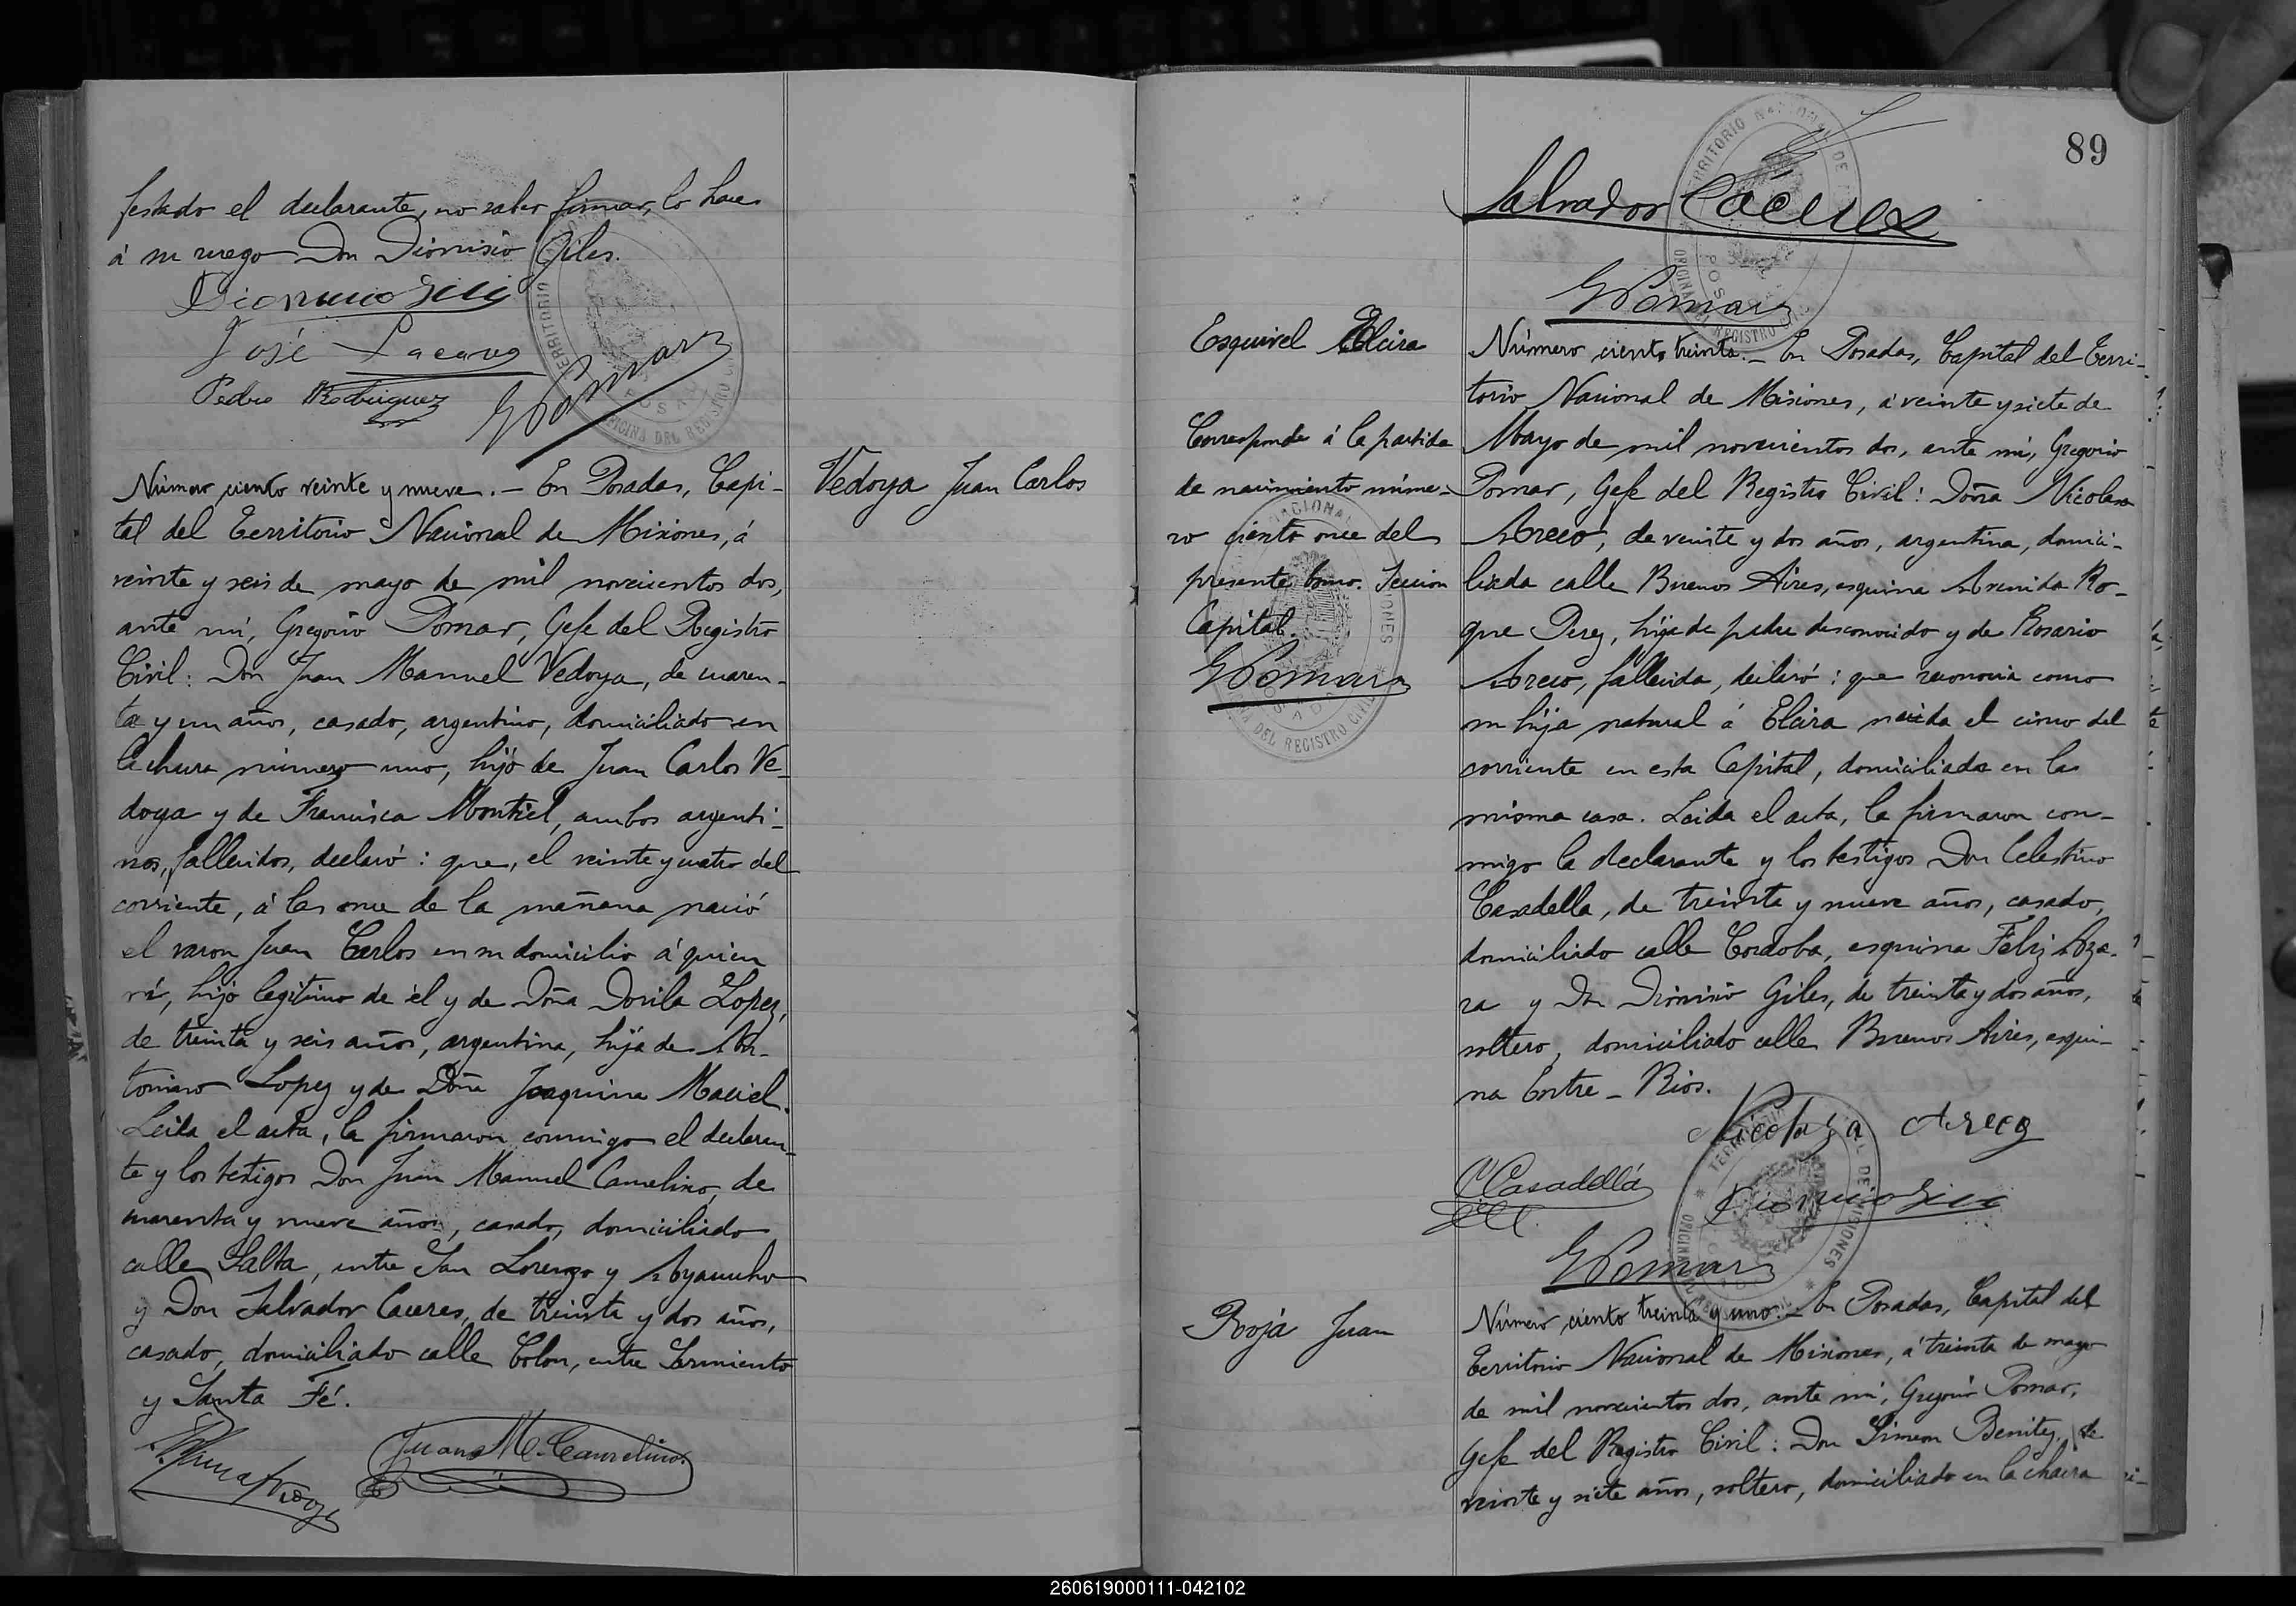 festado el declarante, no saber firmar, lo hace
á su ruego Don Dionisio Giles.
Dionicio Giles
José Lacava
Pedro Rodriguez
GPomar
Número ciento veinte y nueve.— En Posadas, Capi-
tal del Territorio Nacional de Misiones, á
veinte y seis de mayo de mil novecientos dos,
ante mí, Gregorio Pomar, Gefe del Registro
Civil: Don Juan Manuel Vedoya, de cuaren-
ta y un años, casado, argentino, domiciliado en
la chacra número uno, hijo de Juan Carlos Ve-
doya y de Francisca Montiel, ambos argenti-
nos, fallecidos, declaró: que, el veinte y cuatro del
corriente, á las once de la mañana nació
el varon Juan Carlos en su domicilio á quien
vi, hijo legítimo de él y de Doña Dorila Lopez,
de treinta y seis años, argentina, hija de An-
tonino Lopez y de Doña Joaquina Maciel.
Leida el acta, la firmaron conmigo el declaran-
te y los testigos Don Juan Manuel Camelino, de
cuarenta y nueve años, casado, domiciliado
calle Salta, entre San Lorenzo y Ayacucho
y Don Salvador Caceres, de treinta y dos años,
casado, domiciliado calle Colon, entre Sarmiento
y Santa Fé.
Juan M. Camelino
Vedoya Juan Carlos
89
Salvador Cáceres
GPomar
Esquivel Elcira
Corresponde á la partida
de nacimiento núme-
ro ciento once del
presente tomo. Seccion
Capital.
GPomar
Número ciento treinta.— En Posadas, Capital del Terri-
torio Nacional de Misiones, á veinte y siete de
Mayo de mil novecientos dos, ante mí, Gregorio
Pomar, Gefe del Registro Civil: Doña Nicolasa
Areco, de veinte y dos años, argentina, domici-
liada calle Buenos Aires, esquina Avenida Ro-
que Perez, hija de padre desconocido y de Rosario
Areco, fallecida, declaró: que reconocia como
su hija natural á Elcira nacida el cinco del
corriente en esta Capital, domiciliada en la
misma casa. Leida el acta, la firmaron con-
migo la declarante y los testigos Don Celestino
Casadella, de treinta y nueve años, casado,
domiciliado calle Cordoba, esquina Feliz Aza-
ra y Don Dionisio Giles, de treinta y dos años,
soltero, domiciliado calle Buenos Aires, esqui-
na Entre-Rios.
Nicolasa Areco
CCasadellá
Dionicio Giles
GPomar
Rojá Juan
Número ciento treinta y uno.— En Posadas, Capital del
Territorio Nacional de Misiones, á treinta de mayo
de mil novecientos dos, ante mí, Gregorio Pomar,
Gefe del Registro Civil: Don Simeon Benitez, de
veinte y siete años, soltero, domiciliado en la chacra
260619000111-042102